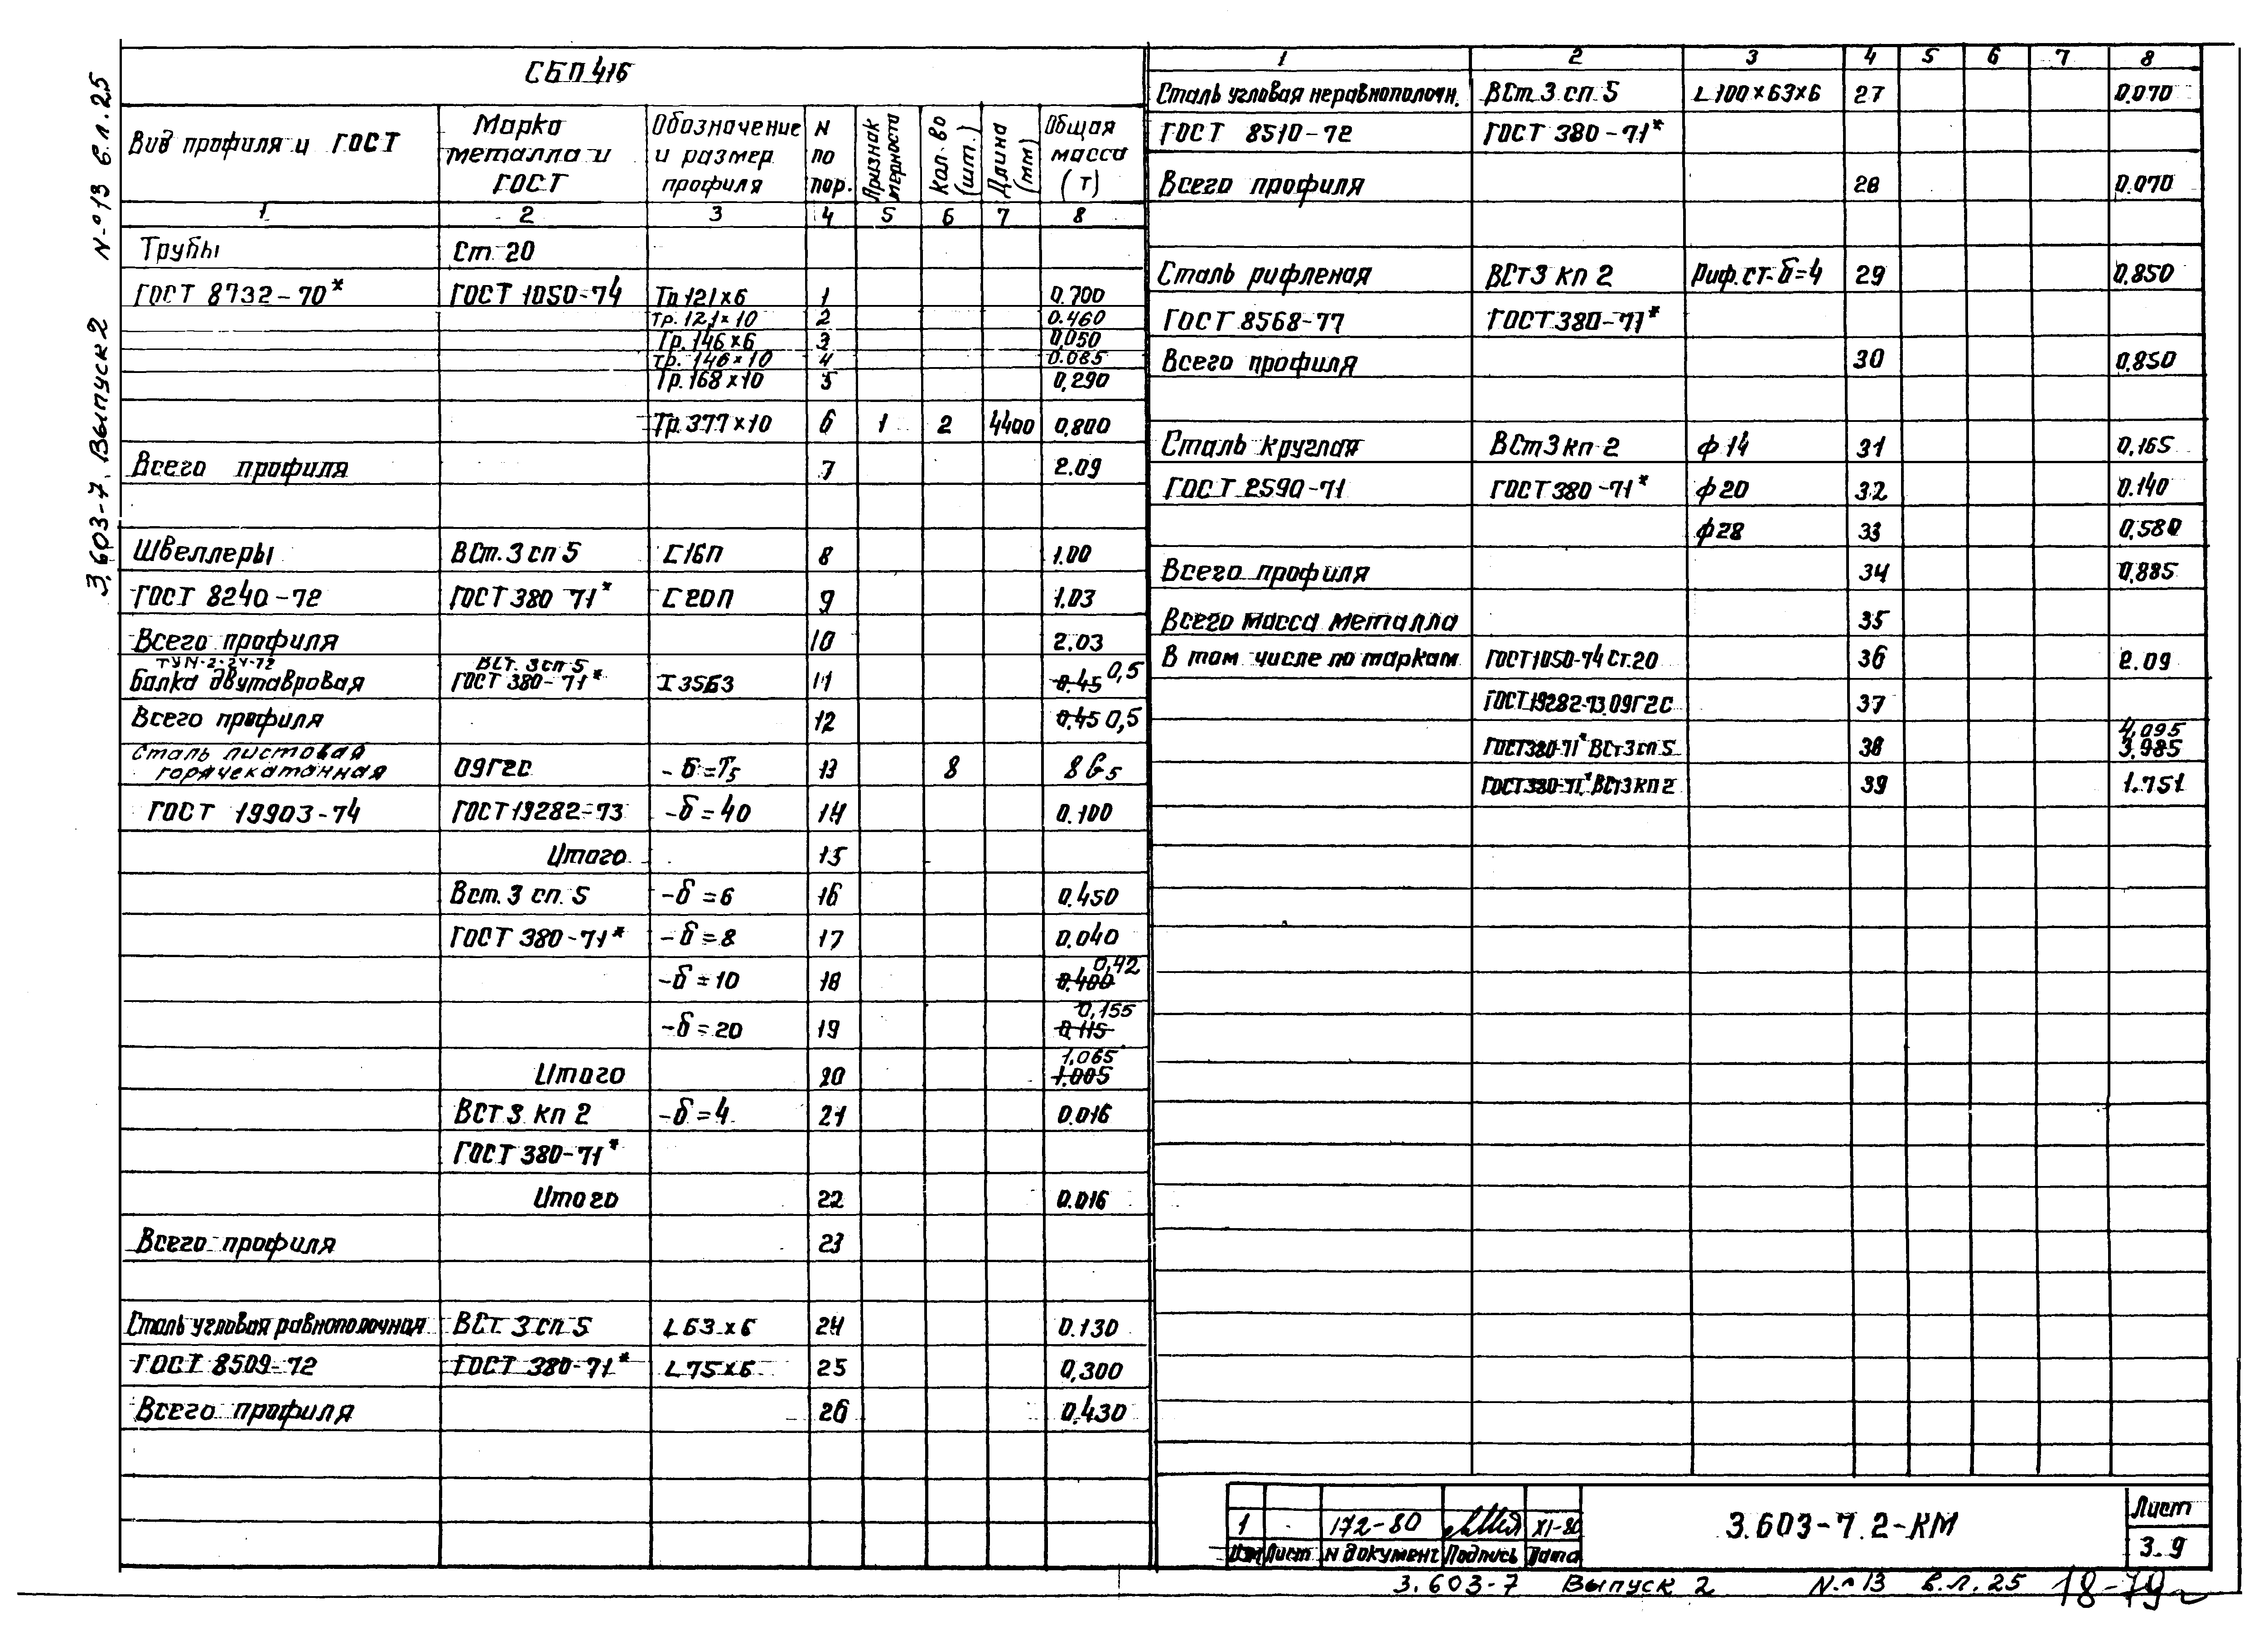 СБП 416
Вид профиля и ГОСТ
Марка металла и ГОСТ
Обозначение и размер профиля
N по пор.
Признак мерности
Кол-во (шт.)
Длина (мм)
Общая масса (т)
1 2 3 4 5 6 7 8
Трубы Ст 20
ГОСТ 8732-70* ГОСТ 1050-74 Тр 121×6 1 0.700
Тр. 121×10 2 0.460
Тр. 146×6 3 0,050
Тр. 146×10 4 0.085
Тр. 168×10 5 0,290
Тр. 377×10 6 1 2 4400 0,800
Всего профиля 7 2.09
Швеллеры ВСт. 3 сп 5 С16П 8 1.00
ГОСТ 8240-72 ГОСТ 380 71* С20П 9 1.03
Всего профиля 10 2.03
ВСт. 3 сп 5
Балка двутавровая ГОСТ 380-71* I 35Б3 11 0.45 0,5
Всего профиля 12 0.45 0,5
Сталь листовая
горячекатанная 09Г2С 13 8
ГОСТ 19903-74 ГОСТ 19282-73 -δ=40 14 0.100
Итого 15
Вст. 3 сп. 5 -δ=6 16 0.450
ГОСТ 380-71* -δ=8 17 0.040
0,42
-δ=10 18 0.400
0,155
-δ=20 19 0.115
1,065
Итого 20 1.005
ВСт 3 кп 2 -δ=4 21 0.016
ГОСТ 380-71*
Итого 22 0.016
Всего профиля 23
Сталь угловая равнополочная ВСт. 3 сп 5 L 63×6 24 0.130
ГОСТ 8509-72 ГОСТ 380-71* L 75×6 25 0,300
Всего профиля 26 0.430
1 2 3 4 5 6 7 8
Сталь угловая неравнополочн. ВСт. 3 сп. 5 L 100×63×6 27 0.070
ГОСТ 8510-72 ГОСТ 380-71*
Всего профиля 28 0.070
Сталь рифленая ВСт3 кп 2 Риф.ст-δ=4 29 0,850
ГОСТ 8568-77 ГОСТ 380-71*
Всего профиля 30 0.850
Сталь круглая ВСт3 кп 2 ф 14 31 0,165
ГОСТ 2590-71 ГОСТ 380-71* ф 20 32 0.140
ф 28 33 0,580
Всего профиля 34 0,885
Всего масса металла 35
В том числе по маркам ГОСТ 1050-74 Ст.20 36 2.09
ГОСТ 19282-73.09Г2С 37
4,095
ГОСТ 380-71* ВСт3 сп 5 38 3.985
ГОСТ 380-71* ВСт3 кп 2 39 1.751
1 - 172-80 XI-80
Изм Лист N документ Подпись Дата
3.603-7.2-КМ
Лист
3.9
3.603-7 Выпуск 2 N-º 13 в.л.25
3.603-7 Выпуск 2 N-º 13 в.л.25 18-79